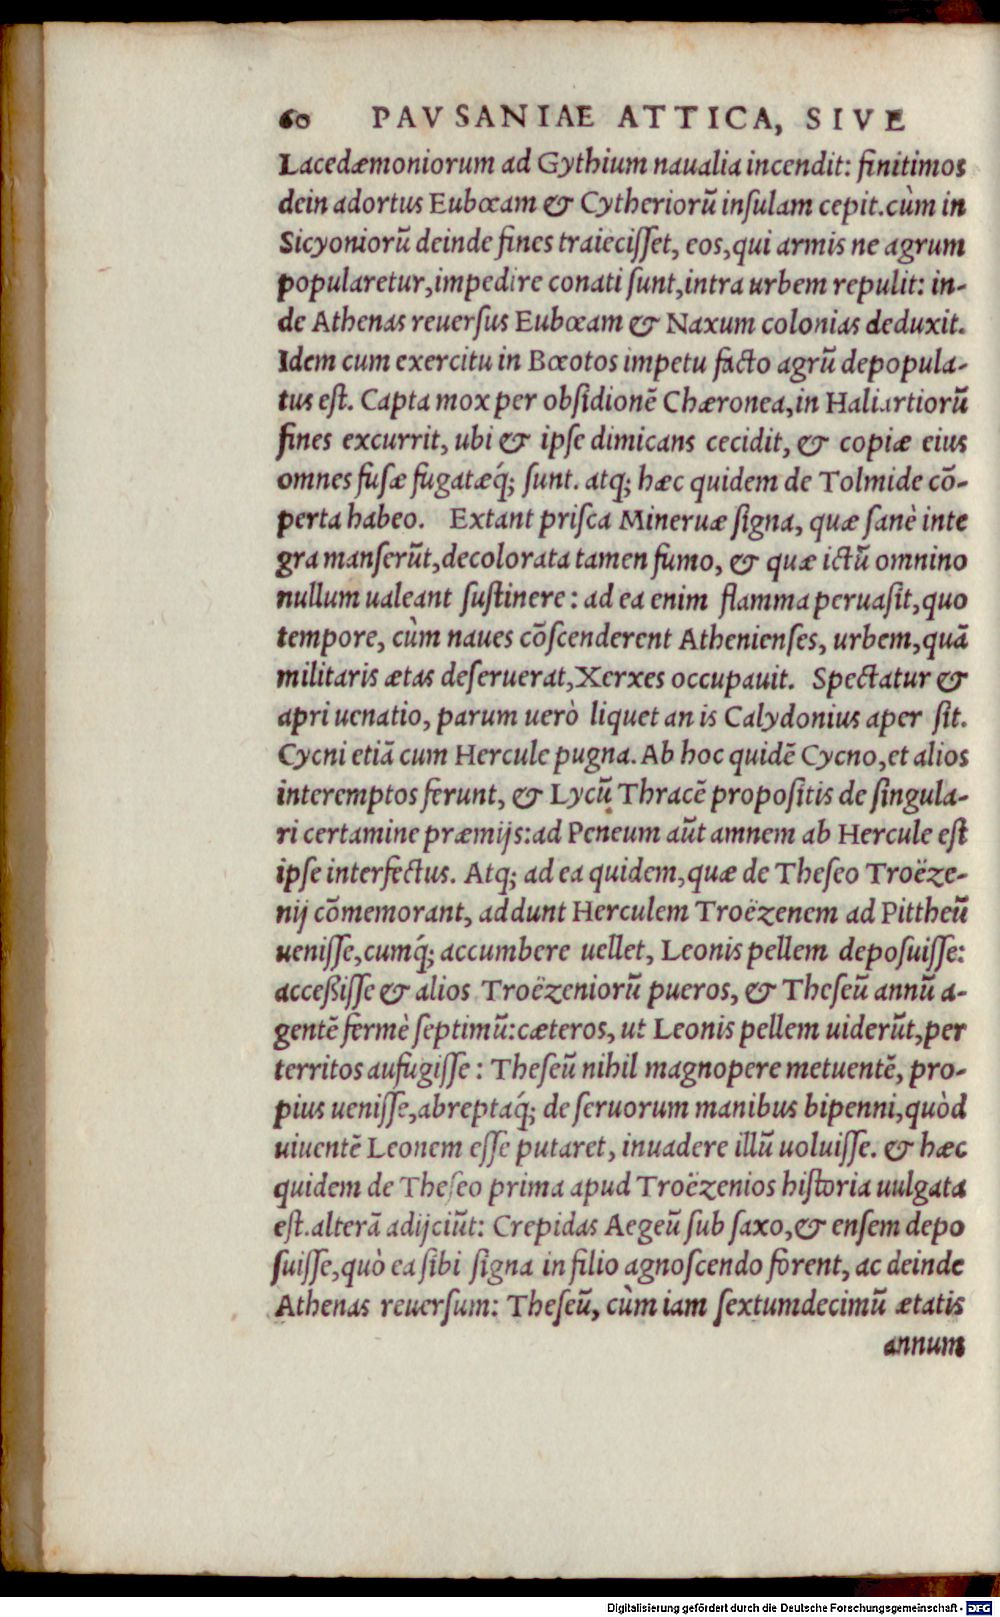 60 PAVSANIAE ATTICA, SIVE
Lacedæmoniorum ad Gythium naualia incendit: finitimos
dein adortus Eubœam & Cytheriorũ inſulam cepit.cùm in
Sicyoniorũ deinde fines traieciſſet, eos,qui armis ne agrum
popularetur,impedire conati ſunt,intra urbem repulit: in-
de Athenas reuerſus Eubœam & Naxum colonias deduxit.
Idem cum exercitu in Bœotos impetu facto agrũ depopula-
tus eſt. Capta mox per obſidionẽ Chæronea,in Haliartiorũ
fines excurrit, ubi & ipſe dimicans cecidit, & copiæ eius
omnes fuſæ fugatæq́; ſunt. atq; hæc quidem de Tolmide cõ-
perta habeo. Extant priſca Mineruæ ſigna, quæ ſanè inte
gra manſerũt,decolorata tamen fumo, & quæ ictũ omnino
nullum ualeant ſuſtinere: ad ea enim flamma peruaſit,quo
tempore, cùm naues cõſcenderent Athenienſes, urbem,quã
militaris ætas deſeruerat,Xerxes occupauit. Spectatur &
apri uenatio, parum uerò liquet an is Calydonius aper ſit.
Cycni etiã cum Hercule pugna. Ab hoc quidẽ Cycno,et alios
interemptos ferunt, & Lycũ Thracẽ propoſitis de ſingula-
ri certamine præmijs:ad Peneum aũt amnem ab Hercule eſt
ipſe interfectus. Atq; ad ea quidem,quæ de Theſeo Troëze-
nij cõmemorant, addunt Herculem Troëzenem ad Pittheũ
ueniſſe,cumq́; accumbere uellet, Leonis pellem depoſuiſſe:
acceßiſſe & alios Troëzeniorũ pueros, & Theſeũ annũ a-
gentẽ fermè ſeptimũ:cæteros, ut Leonis pellem uiderũt,per
territos aufugiſſe: Theſeũ nihil magnopere metuentẽ, pro-
pius ueniſſe,abreptaq́; de ſeruorum manibus bipenni,quòd
uiuentẽ Leonem eſſe putaret, inuadere illũ uoluiſſe. & hæc
quidem de Theſeo prima apud Troëzenios hiſtoria uulgata
eſt.alterã adijciũt: Crepidas Aegeũ ſub ſaxo,& enſem depo
ſuiſſe,quò ea ſibi ſigna in filio agnoſcendo forent, ac deinde
Athenas reuerſum: Theſeũ, cùm iam ſextumdecimũ ætatis
annum
Digitalisierung gefördert durch die Deutsche Forschungsgemeinschaft - DFG